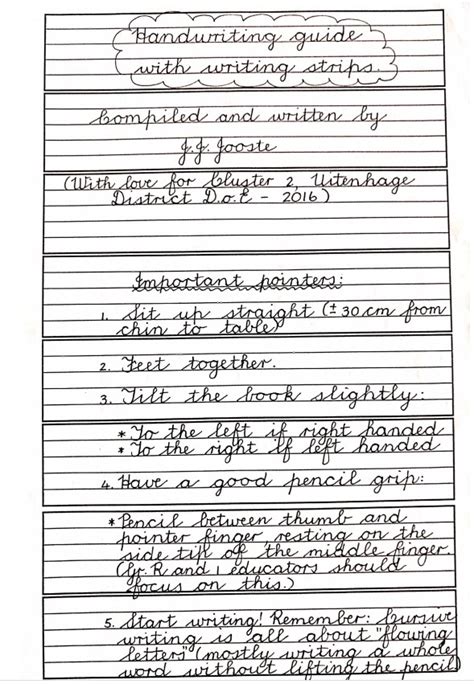 Handwriting guide
with writing strips.
Compiled and written by
J.J. Jooste
(With love for Cluster 2, Uitenhage
District D.o.E - 2016)
Important pointers:
1. Sit up straight (± 30 cm from
chin to table)
2. Feet together.
3. Tilt the book slightly:
* To the left if right handed
* To the right if left handed
4. Have a good pencil grip:
* Pencil between thumb and
pointer finger, resting on the
side tip of the middle finger.
(Gr. R and 1 educators should
focus on this.)
5. Start writing! Remember: Cursive
writing is all about "flowing
letters" (mostly writing a whole
word without lifting the pencil)